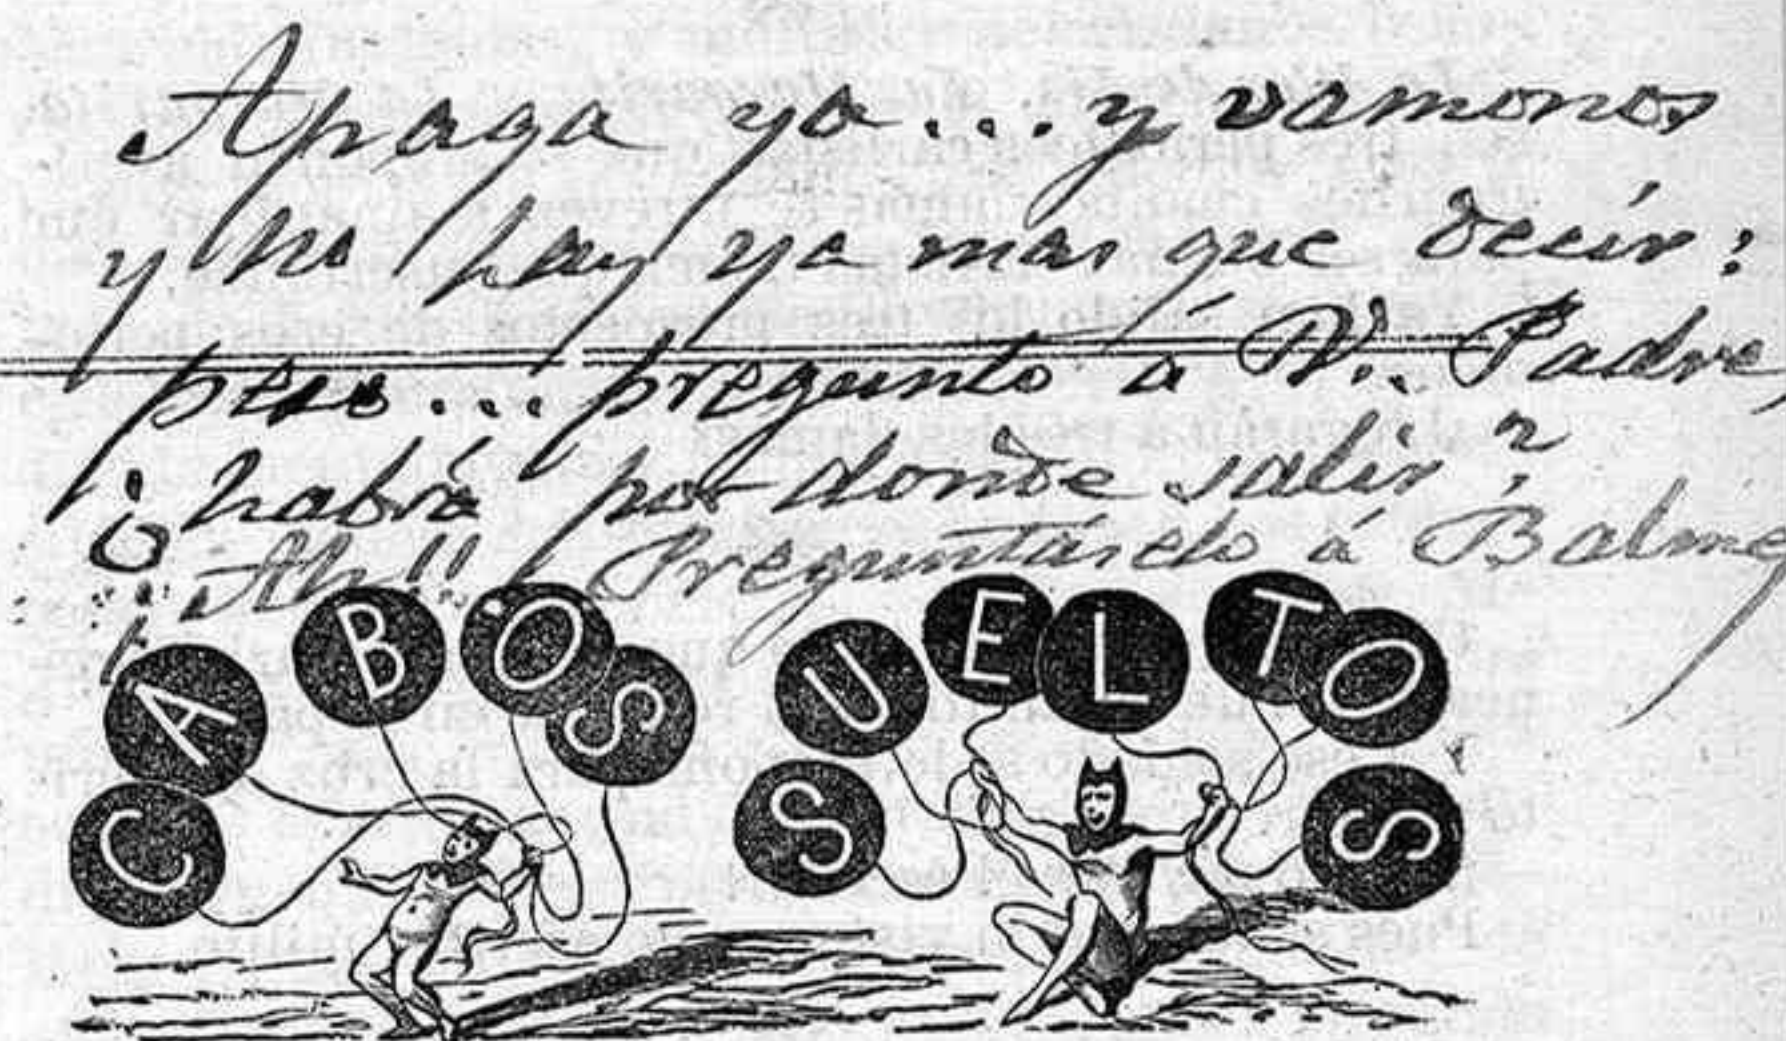 Apaga ya... y vamonos
y no hay ya mas que decir:
pero... pregunto á V.. Padre,
¿habrá por donde salir?
Ah!! Preguntárselo á Balmes
CABOS SUELTOS